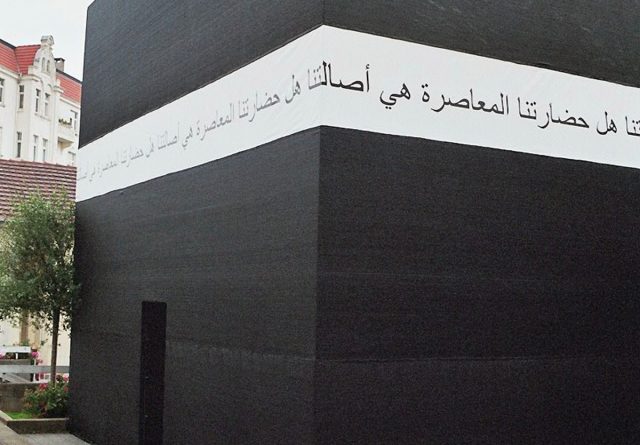 تنا هل حضارتنا المعاصرة هي أصالتنا هل حضارتنا المعاصرة هي أصالتنا هل حضارتنا المعاصرة هي